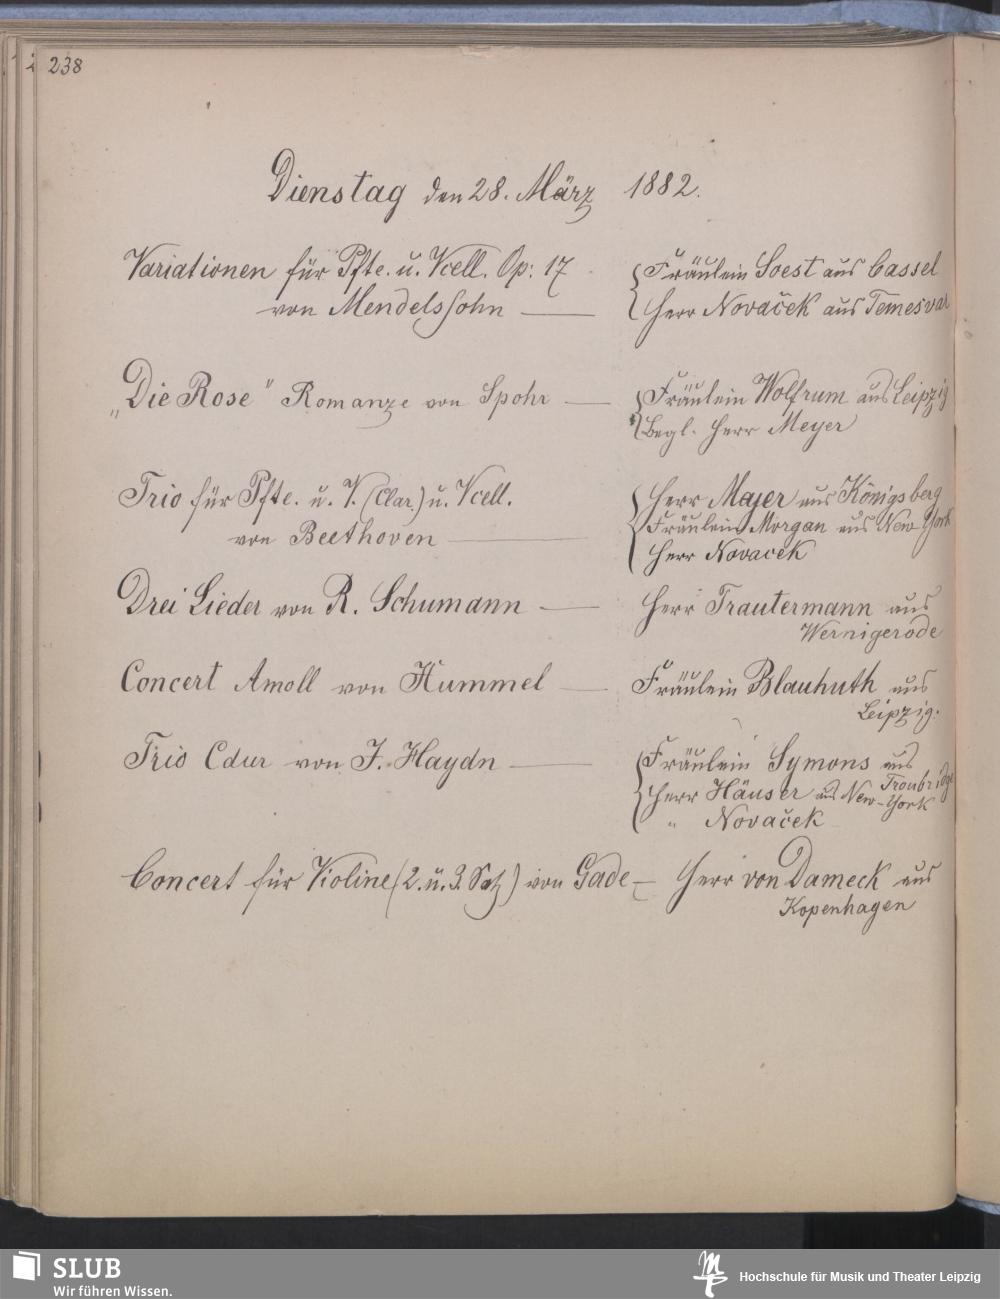 238
Dienstag den 28. März 1882.
Variationen für Pfte. u. Vcell. Op: 17
von Mendelssohn
Fräulein Soest aus Cassel
Herr Novaček aus Temesvar
„Die Rose" Romanze von Spohr
Fräulein Wolfrum aus Leipzig
Begl. Herr Meyer
Trio für Pfte. u. V. (Clar.) u. Vcell.
von Beethoven
Herr Majer aus Königsberg
Fräulein Morgan aus New-York
Herr Novacek
Drei Lieder von R. Schumann
Herr Trautermann aus
Wernigerode
Concert Amoll von Hummel
Fräulein Blauhuth aus
Leipzig.
Trio Cdur von J. Haydn
Fräulein Symons aus
Troubridge
Herr Häuser aus New-York
" Novaček
Concert für Violine (2. u. 3. Satz) von Gade – Herr von Dameck aus
Kopenhagen
SLUB
Wir führen Wissen.
Hochschule für Musik und Theater Leipzig